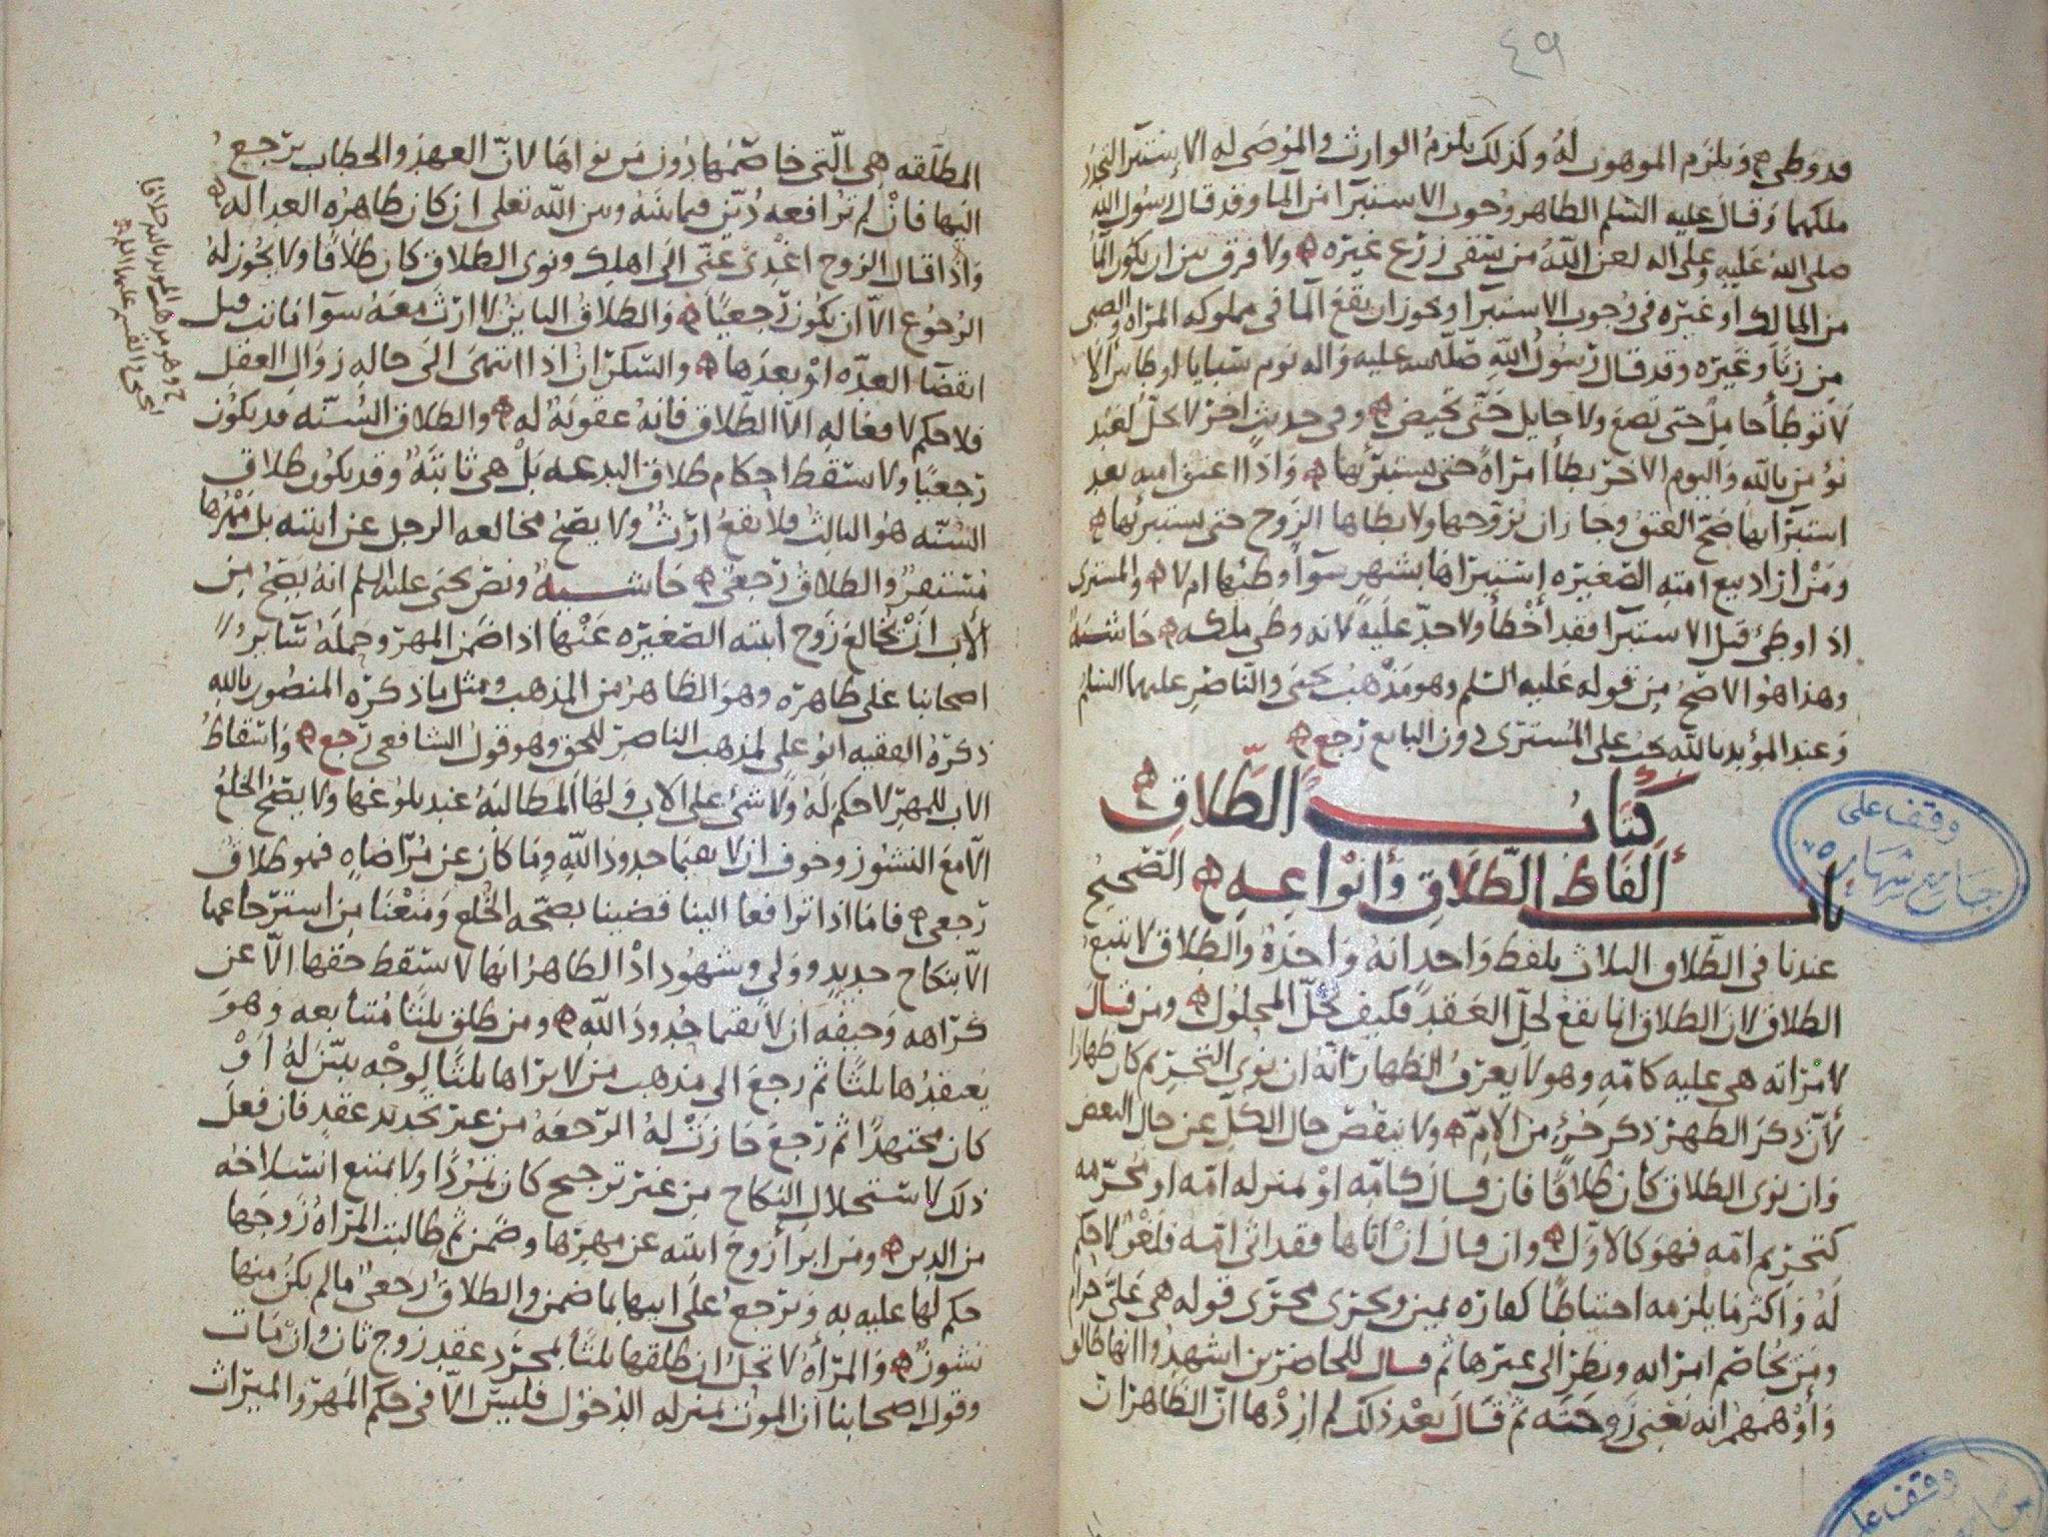 ٤٩
قد وطى ويلزم الموهوب له وكذلك يلزم الوارث والموصى له الاستبرا لتجدد
ملكهما وقال عليه السلم الظاهر وجوب الاستبرا من الما وقد قال رسول الله
صلى الله عليه وعلى اله لعن الله من يسقى زرع غيره ولا فرق بين ان يكون الما
من المالك او غيره فى وجوب الاستبرا ويجوز ان يقع الما فى مملوكه المراه والصبى
من زنا وغيره وقد قال رسول الله صلى الله عليه واله يوم سبايا اوطاس الا
لا توطا حامل حتى تضع ولا حايل حتى تحيض وفى حديث اخر لا يحل لعبد
يؤمن بالله واليوم الاخر يطأ امرأة حتى يستبرئها واذا اعتق امته بعد
استبرائها صح العتق وجاز ان يزوجها ولا يطاها الزوج حتى يستبرئها
ومن اراد بيع امته الصغيره استبراها بشهر سوآ وطئها ام لا والمشترى
اذا وطئ قبل الاستبرا فقد أخطأ ولا حد عليه لانه وطى ملكه حاشية
وهذا هو الاصح من قوله عليه السلم وهو مذهب يحيى والناصر عليهما السلم
وعند المؤيد بالله يجب على المشترى دون البايع رجع
كتاب الطلاق
باب ألفاظ الطلاق وأنواعه الصحيح
عندنا فى الطلاق الثلاث بلفظ واحد انه واحدة والطلاق لا يتبع
الطلاق لان الطلاق انما يقع لحل العقد فكيف يحل المحلول ومن قال
لامراته هى عليه كامه وهو لا يعرف الظهار انه ان نوى التحريم كان ظهارا
لأن ذكر الظهر ذكر جزء من الام ولا ينقص حال الكل عن حال البعض
وان نوى الطلاق كان طلاقا فان قال كامه او بمنزله امه او محرمه
كتحريم امه فهو كالاول وان قال ان اتاها فقد اتى امه فلغو لا حكم
له واكثر ما يلزمه احتياطا كفاره يمين ويجرى مجرى قوله هى على حرام
ومن يخاصم امراته ونظر الى غيرها ثم قال للحاضرين اشهدوا انها طالق
وأوهمهم انه يعنى زوجته ثم قال بعد ذلك لم اردها ان الظاهر ان
المطلقه هى التى خاصمها دون من نواها لان العهد والخطاب يرجع
اليها فان لم ترافعه دُيّن فيما بينه وبين الله تعلى ان كان ظاهره العداله
واذا قال الزوج اغدى عنى الى اهلك ونوى الطلاق كان طلاقا ولا يجوز له
الرجوع الا ان يكون رجعيا والطلاق الباين لا ارث معه سوآ ماتت قبل
انقضآ العده او بعدها والسكران اذا انتهى الى حاله زوال العقل
فلا حكم لافعاله الا الطلاق فانه عقوبة له والطلاق السنه قد يكون
رجعيا ولا يسقط احكام طلاق البدعه بل هى ثابتة وقد يكون طلاق
السنه هو الثالث فلا يقع ارث ولا يصح مخالعه الرجل عن ابنته بل مهرها
مستقر والطلاق رجعى حاشية ونص يحيى عليه السلم انه يصح من
الأب ان يخالع زوج ابنته الصغيره عنها اذا ضمن المهر وحمله سآير
اصحابنا على ظاهره وهو الظاهر من المذهب ومثل ما ذكره المنصور بالله
ذكره الفقيه ابو على لمذهب الناصر للحق وهو قول الشافعى رجع واسقاط
الاب للمهر لا حكم له ولا شئ على الاب ولها المطالبة عند بلوغها ولا يصح الخلع
الا مع النشوز وخوف ان لا يقيما حدود الله وما كان عن مراضاه فهو طلاق
رجعى فاما اذا ترافعا الينا قضينا بصحه الخلع ومنعنا من استرجاعها
الا بنكاح جديد وولى وشهود اذ الظاهر انها لا تسقط حقها الا عن
كراهه وخيفه ان لا يقيما حدود الله ومن طلق ثلثا متتابعه وهو
يعتقدها ثلثا ثم رجع الى مذهب من لا يراها ثلثا لوجه يتبين له او
كان مجتهدا ثم رجع جازت له الرجعه من غير تجديد عقد فان فعل
ذلك لاستحلال النكاح من غير ترجيح كان تمردا ولا يمتنع انسلاخه
من الدين ومن ابرأ زوج ابنته عن مهرها وضمن ثم طالبت المراة زوجها
حكم لها عليه به ويرجع على ابيها بما ضمن والطلاق رجعى ما لم يكن منها
نشوز والمرأة لا تحل ان طلقها ثلثا بمجرد عقد زوج ثان وان مات
وقول اصحابنا ان الموت بمنزله الدخول فليس الا فى حكم المهر والميراث
وقف على
جامع شهاره
وقف على